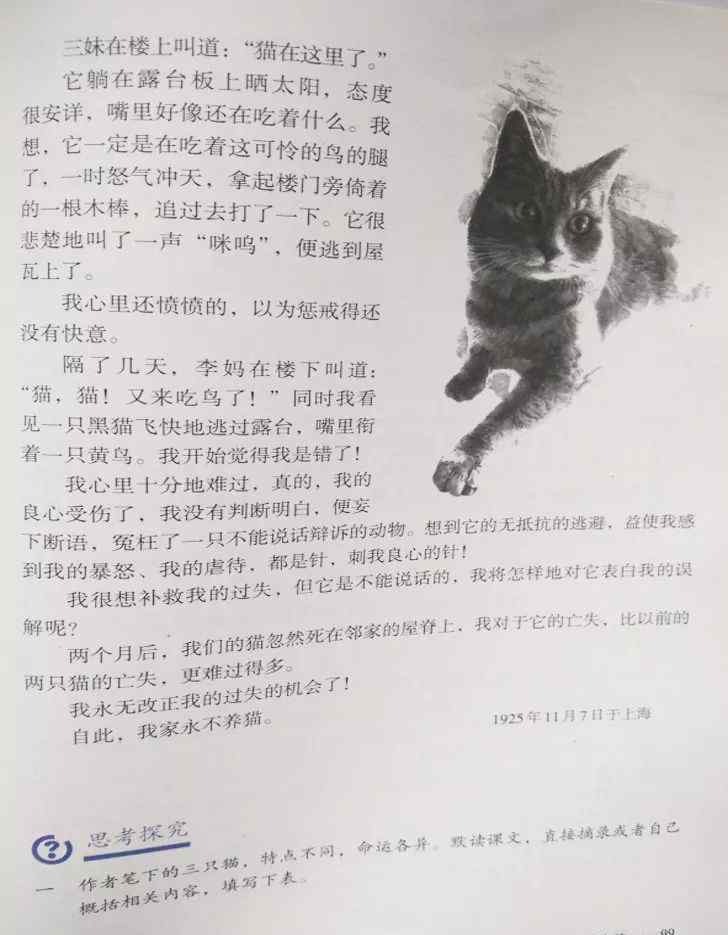 三妹在楼上叫道：“猫在这里了。”
它躺在露台板上晒太阳，态度
很安详，嘴里好像还在吃着什么。我
想，它一定是在吃着这可怜的鸟的腿
了，一时怒气冲天，拿起楼门旁倚着
的一根木棒，追过去打了一下。它很
悲楚地叫了一声“咪呜”，便逃到屋
瓦上了。
我心里还愤愤的，以为惩戒得还
没有快意。
隔了几天，李妈在楼下叫道：
“猫，猫！又来吃鸟了！”同时我看
见一只黑猫飞快地逃过露台，嘴里衔
着一只黄鸟。我开始觉得我是错了！
我心里十分地难过，真的，我的
良心受伤了，我没有判断明白，便妄
下断语，冤枉了一只不能说话辩诉的动物。想到它的无抵抗的逃避，益使我感
到我的暴怒、我的虐待，都是针，刺我良心的针！
我很想补救我的过失，但它是不能说话的，我将怎样地对它表白我的误
解呢？
两个月后，我们的猫忽然死在邻家的屋脊上，我对于它的亡失，比以前的
两只猫的亡失，更难过得多。
我永无改正我的过失的机会了！
自此，我家永不养猫。
1925年11月7日于上海
? 思考探究
一 作者笔下的三只猫，特点不同，命运各异。默读课文，直接摘录或者自己
概括相关内容，填写下表。